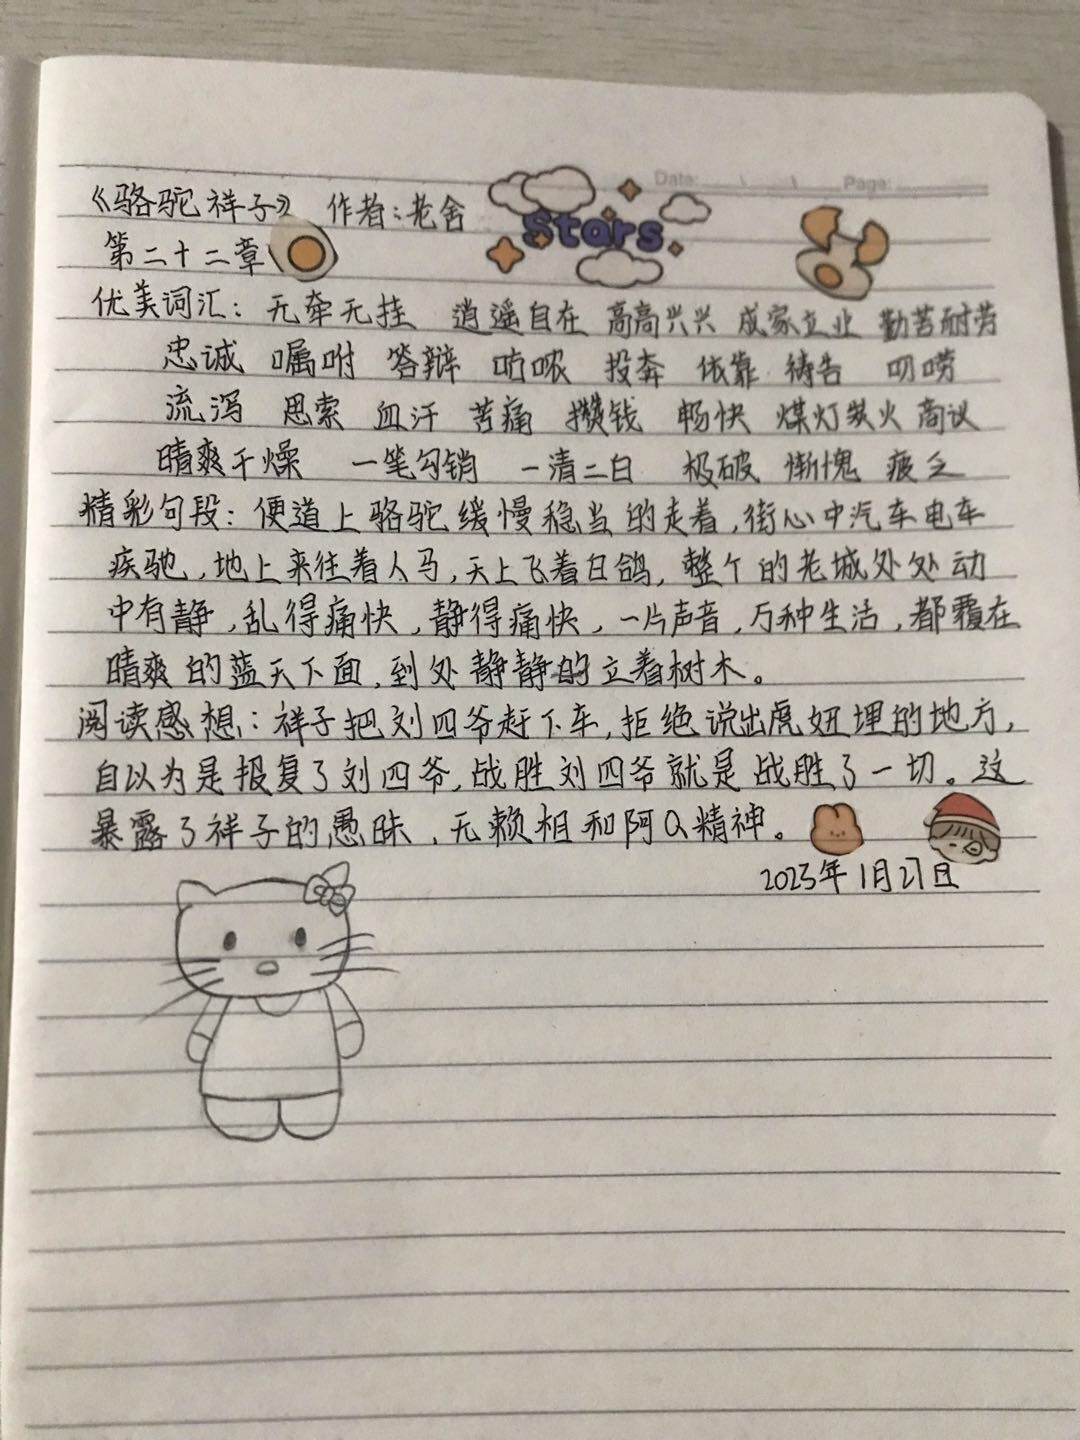 《骆驼祥子》 作者:老舍
Stars
Date: \ \ Page:
第二十二章
优美词汇: 无牵无挂 逍遥自在 高高兴兴 成家立业 勤苦耐劳
忠诚 嘱咐 答辩 咕哝 投奔 依靠 祷告 叨唠
流泻 思索 血汗 苦痛 攒钱 畅快 煤灯炭火 商议
晴爽干燥 一笔勾销 一清二白 极破 惭愧 疲乏
精彩句段: 便道上骆驼缓慢稳当的走着,街心中汽车电车
疾驰,地上来往着人马,天上飞着白鸽,整个的老城处处动
中有静,乱得痛快,静得痛快,一片声音,万种生活,都覆在
晴爽的蓝天下面,到处静静的立着树木。
阅读感想:祥子把刘四爷赶下车,拒绝说出虎妞埋的地方,
自以为是报复了刘四爷,战胜刘四爷就是战胜了一切。这
暴露了祥子的愚昧、无赖相和阿Q精神。
2023年1月27日